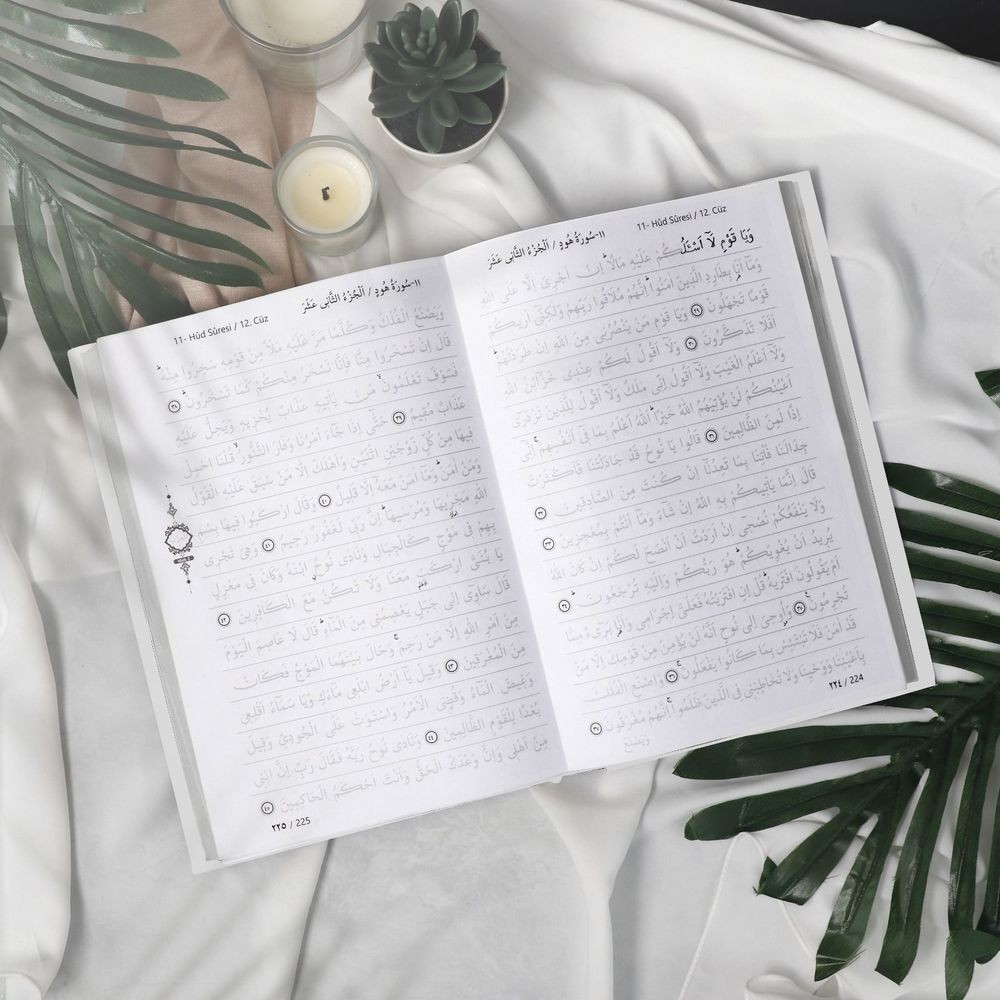 11- Hûd Sûresi / 12. Cüz ١١-سُورَةُ هُودٍ / اَلْجُزْءُ الثَّانِى عَشَرَ
وَيَا قَوْمِ لَآ اَسْـَٔلُكُمْ عَلَيْهِ مَالًاۜ اِنْ اَجْرِىَ اِلَّا عَلَى اللّٰهِ
وَمَٓا اَنَا۬ بِطَارِدِ الَّذِينَ اٰمَنُواۜ اِنَّهُمْ مُلَاقُوا رَبِّهِمْ وَلٰكِنّٖٓى اَرٰيكُمْ
قَوْمًا تَجْهَلُونَ ﴿٢٩﴾ وَيَا قَوْمِ مَنْ يَنْصُرُنِى مِنَ اللّٰهِ اِنْ طَرَدْتُهُمْۜ
اَفَلَا تَذَكَّرُونَ ﴿٣٠﴾ وَلَٓا اَقُولُ لَكُمْ عِنْدِى خَزَٓائِنُ اللّٰهِ
وَلَٓا اَعْلَمُ الْغَيْبَ وَلَٓا اَقُولُ اِنِّى مَلَكٌ وَلَٓا اَقُولُ لِلَّذِينَ تَزْدَرِٓى
اَعْيُنُكُمْ لَنْ يُؤْتِيَهُمُ اللّٰهُ خَيْرًاۜ اَللّٰهُ اَعْلَمُ بِمَا فِٓى اَنْفُسِهِمْۚ اِنِّٓى
اِذًا لَمِنَ الظَّالِمِينَ ﴿٣١﴾ قَالُوا يَا نُوحُ قَدْ جَادَلْتَنَا فَاَكْثَرْتَ
جِدَالَنَا فَأْتِنَا بِمَا تَعِدُنَٓا اِنْ كُنْتَ مِنَ الصَّادِقِينَ ﴿٣٢﴾
قَالَ اِنَّمَا يَأْتِيكُمْ بِهِ اللّٰهُ اِنْ شَٓاءَ وَمَٓا اَنْتُمْ بِمُعْجِزِينَ ﴿٣٣﴾
وَلَا يَنْفَعُكُمْ نُصْحِٓى اِنْ اَرَدْتُ اَنْ اَنْصَحَ لَكُمْ اِنْ كَانَ اللّٰهُ
يُرِيدُ اَنْ يُغْوِيَكُمْۜ هُوَ رَبُّكُمْ وَاِلَيْهِ تُرْجَعُونَۜ ﴿٣٤﴾
اَمْ يَقُولُونَ افْتَرٰيهُۜ قُلْ اِنِ افْتَرَيْتُهُ فَعَلَىَّ اِجْرَامِى وَاَنَا۬ بَرِٓىءٌ مِمَّا
تُجْرِمُونَ۟ ﴿٣٥﴾ وَاُوحِىَ اِلٰى نُوحٍ اَنَّهُ لَنْ يُؤْمِنَ مِنْ قَوْمِكَ اِلَّا مَنْ
قَدْ اٰمَنَ فَلَا تَبْتَئِسْ بِمَا كَانُوا يَفْعَلُونَۚ ﴿٣٦﴾ وَاصْنَعِ الْفُلْكَ
بِاَعْيُنِنَا وَوَحْيِنَا وَلَا تُخَاطِبْنِى فِى الَّذِينَ ظَلَمُواۚ اِنَّهُمْ مُغْرَقُونَ ﴿٣٧﴾
وَيَصْنَعُ
٢٢٤ / 224
11- Hûd Sûresi / 12. Cüz ١١-سُورَةُ هُودٍ / اَلْجُزْءُ الثَّانِى عَشَرَ
وَيَصْنَعُ الْفُلْكَ وَكُلَّمَا مَرَّ عَلَيْهِ مَلَاٌ مِنْ قَوْمِهِ سَخِرُوا مِنْهُۜ
قَالَ اِنْ تَسْخَرُوا مِنَّا فَاِنَّا نَسْخَرُ مِنْكُمْ كَمَا تَسْخَرُونَۜ ﴿٣٨﴾
فَسَوْفَ تَعْلَمُونَۙ مَنْ يَأْتِيهِ عَذَابٌ يُخْزِيهِ وَيَحِلُّ عَلَيْهِ
عَذَابٌ مُقِيمٌ ﴿٣٩﴾ حَتّٰٓى اِذَا جَٓاءَ اَمْرُنَا وَفَارَ التَّنُّورُۙ قُلْنَا احْمِلْ
فِيهَا مِنْ كُلٍّ زَوْجَيْنِ اثْنَيْنِ وَاَهْلَكَ اِلَّا مَنْ سَبَقَ عَلَيْهِ الْقَوْلُ
وَمَنْ اٰمَنَۜ وَمَٓا اٰمَنَ مَعَهُٓ اِلَّا قَلِيلٌ ﴿٤٠﴾ وَقَالَ ارْكَبُوا فِيهَا بِسْمِ
اللّٰهِ مَجْرٰۭيهَا وَمُرْسٰيهَاۜ اِنَّ رَبِّى لَغَفُورٌ رَحِيمٌ ﴿٤١﴾ وَهِىَ تَجْرِى
بِهِمْ فِى مَوْجٍ كَالْجِبَالِ وَنَادٰى نُوحٌۨ ابْنَهُ وَكَانَ فِى مَعْزِلٍ
يَا بُنَىَّ ارْكَبْ مَعَنَا وَلَا تَكُنْ مَعَ الْكَافِرِينَ ﴿٤٢﴾
قَالَ سَاٰوِٓى اِلٰى جَبَلٍ يَعْصِمُنِى مِنَ الْمَٓاءِۜ قَالَ لَا عَاصِمَ الْيَوْمَ
مِنْ اَمْرِ اللّٰهِ اِلَّا مَنْ رَحِمَۚ وَحَالَ بَيْنَهُمَا الْمَوْجُ فَكَانَ
مِنَ الْمُغْرَقِينَ ﴿٤٣﴾ وَقِيلَ يَٓا اَرْضُ ابْلَعِى مَٓاءَكِ وَيَا سَمَٓاءُ اَقْلِعِى
وَغِيضَ الْمَٓاءُ وَقُضِىَ الْاَمْرُ وَاسْتَوَتْ عَلَى الْجُودِىِّ وَقِيلَ
بُعْدًا لِلْقَوْمِ الظَّالِمِينَ ﴿٤٤﴾ وَنَادٰى نُوحٌ رَبَّهُ فَقَالَ رَبِّ اِنَّ ابْنِى
مِنْ اَهْلِى وَاِنَّ وَعْدَكَ الْحَقُّ وَاَنْتَ اَحْكَمُ الْحَاكِمِينَ ﴿٤٥﴾
٢٢٥ / 225